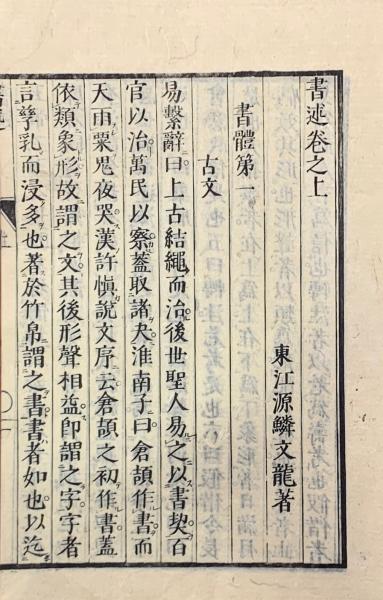 書述卷之上
東江源鱗文龍著
書體第一
古文
易繫辭曰上古結繩而治後世聖人易之以書契百
官以治萬民以察蓋取諸夬淮南子曰倉頡作書而
天雨粟鬼夜哭漢許愼說文序云倉頡之初作書蓋
依類象形故謂之文其後形聲相益卽謂之字字者
言孳乳而浸多也著於竹帛謂之書書者如也以迄